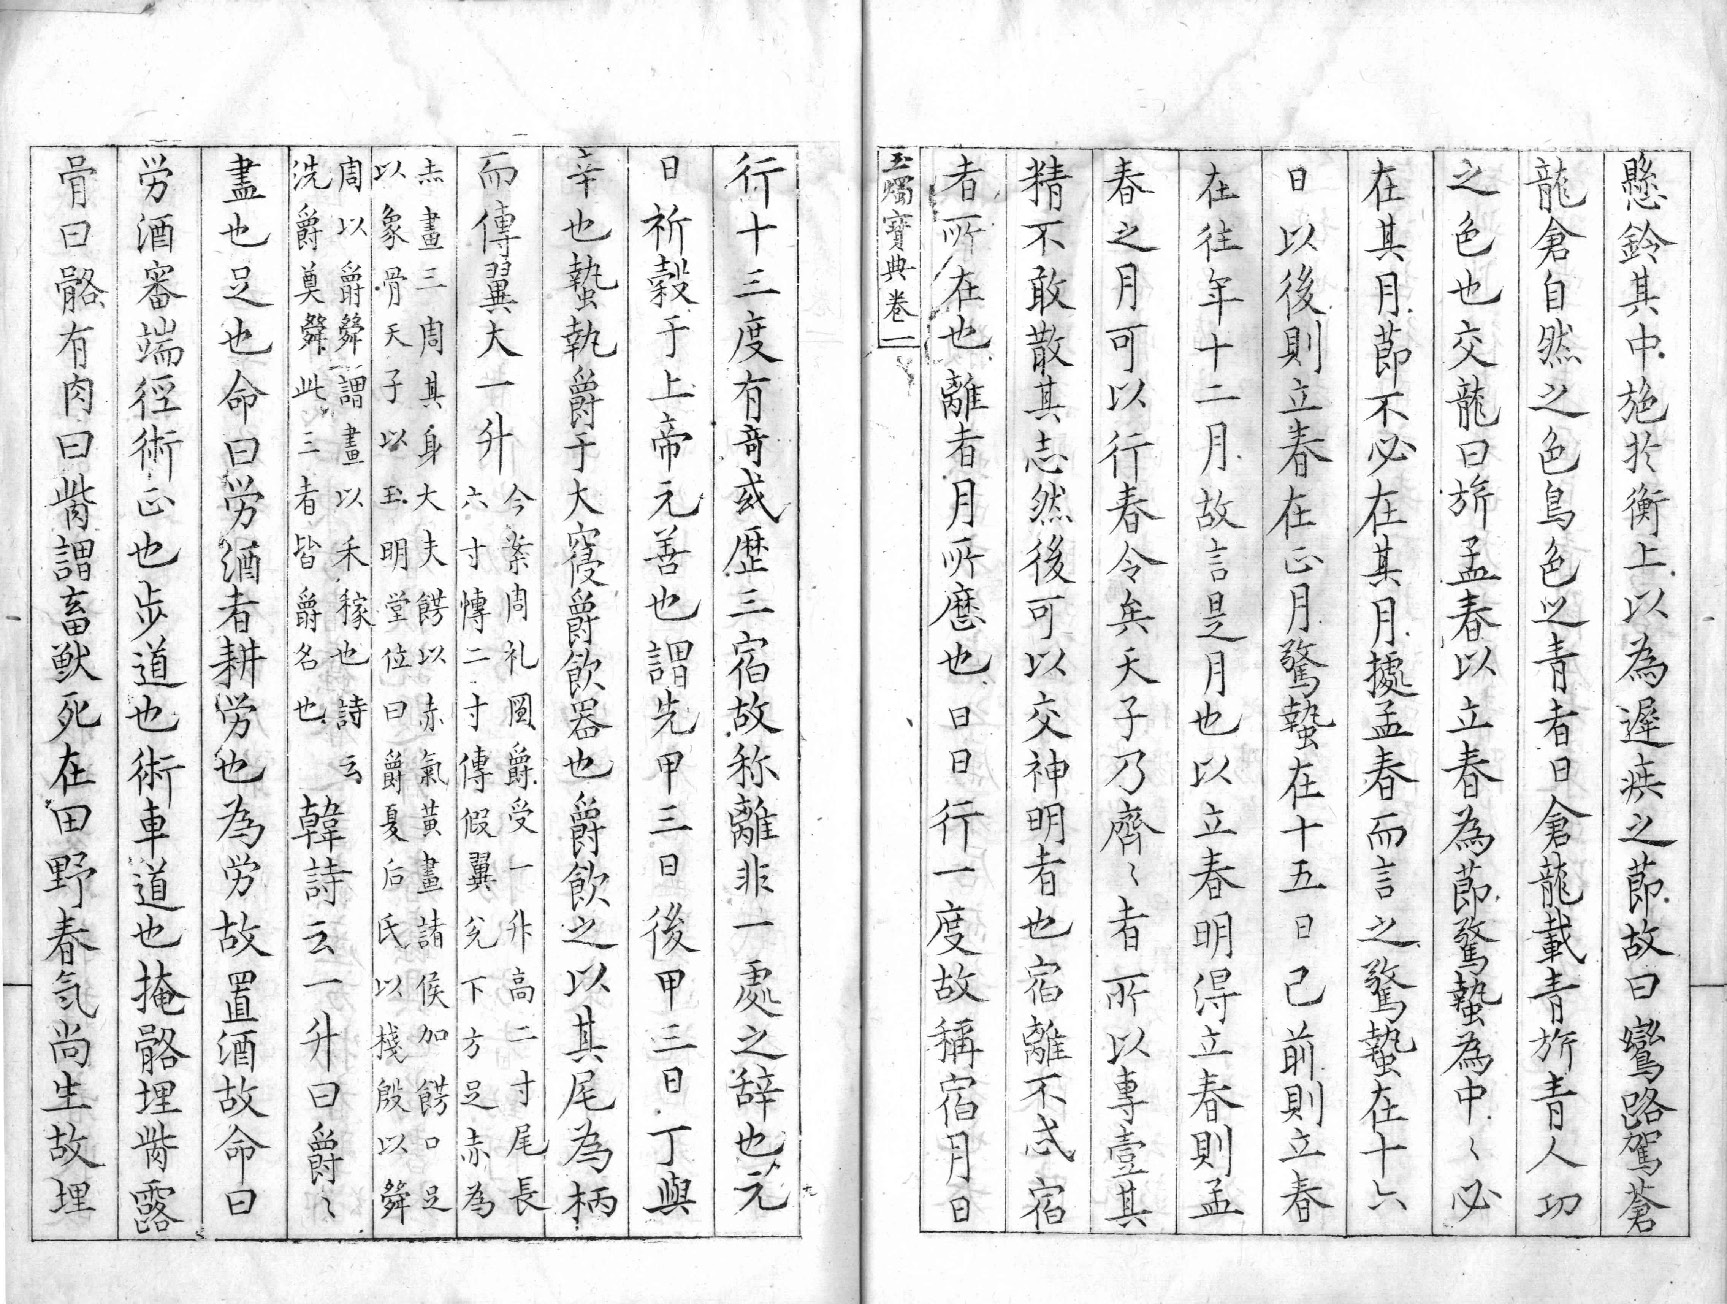 懸鈴其中施於衡上以為遲疾之節故曰鸞路駕蒼
龍倉自然之色鳥色以青者曰倉龍載青旂青人功
之色也交龍曰旂孟春以立春為節驚蟄為中〻必
在其月節不必在其月據孟春而言之驚蟄在十六
日以後則立春在正月驚蟄在十五日已前則立春
在往年十二月故言是月也以立春明得立春則孟
春之月可以行春令矣天子乃齊〻者所以專壹其
精不敢散其志然後可以交神明者也宿離不忒宿
者所在也離者月所歷也日日行一度故稱宿月日
玉燭寶典卷一
行十三度有奇或歷三宿故称離非一處之辞也元
日祈穀于上帝元善也謂先甲三日後甲三日丁與
辛也蟄執爵于大寑爵飲器也爵飲之以其尾為柄
而傳翼大一升
今案周礼圖爵受一升高二寸尾長
六寸慱二寸傳假翼兊下方足赤為
赤畫三周其身大夫餝以赤氣黃畫諸侯加餝口足
以象骨天子以玉明堂位曰爵夏后氏以棧殷以斝
周以爵斝謂畫以禾稼也詩云
洗爵奠斝此三者皆爵名也
韓詩云一升曰爵〻
盡也足也命曰労酒者耕労也為労故置酒故命曰
労酒審端徑術正也步道也術車道也掩骼埋胔露
骨曰骼有肉曰胔謂畜獣死在田野春氣尚生故埋